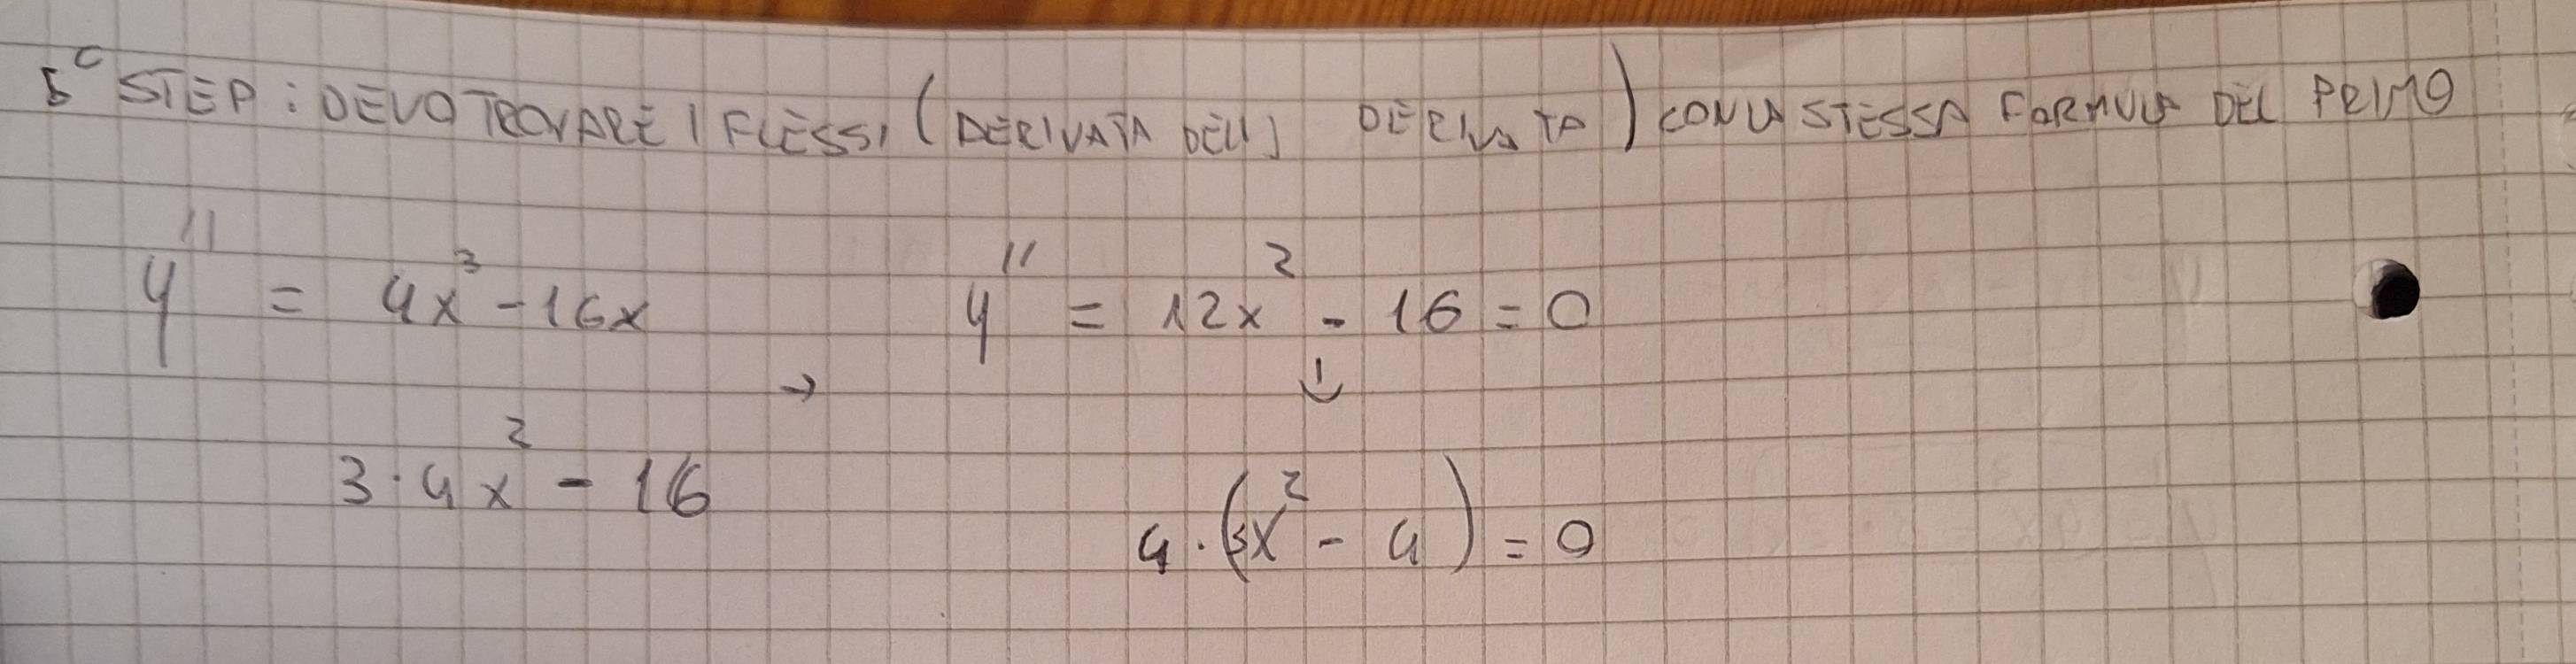 5° STEP : DEVO TROVARE I FLESSI (DERIVATA DELLA DERIVATA) CON LA STESSA FORMULA DEL PRIMO
y'' = 4x³ - 16x
y'' = 12x² - 16 = 0
→
↓
3·4x² - 16
4·(3x² - 4) = 0